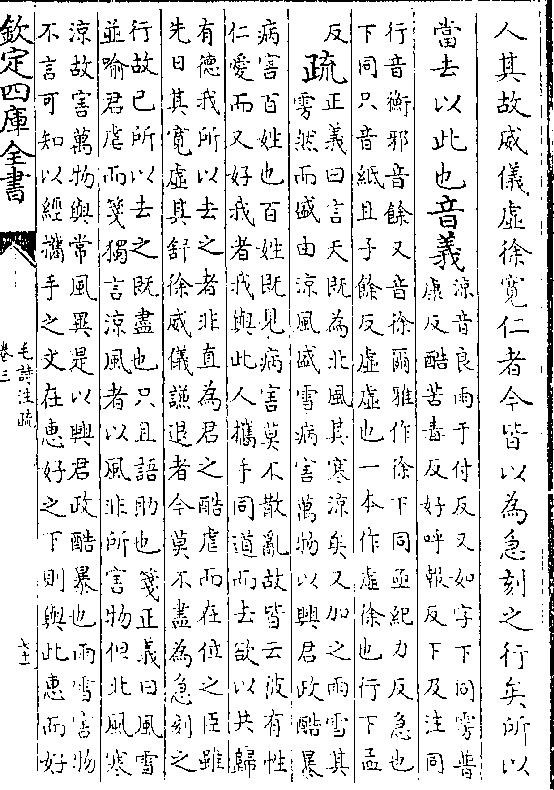 人其故威儀虛徐寬仁者今皆以為急刻之行矣所以
當去以此也音義
涼音良雨于付反又如字下同雱普
康反酷苦毒反好呼報反下及注同
行音衡邪音餘又音徐爾雅作徐下同亟紀力反急也
下同只音紙且子餘反虛虛也一本作虛徐也行下孟
反
疏
正義曰言天既為北風其寒涼矣又加之雨雪其
雱然而盛由涼風盛雪病害萬物以興君政酷暴
病害百姓也百姓既見病害莫不散亂故皆云彼有性
仁愛而又好我者我與此人攜手同道而去欲以共歸
有德我所以去之者非直為君之酷虐而在位之臣雖
先日其寬虛其舒徐威儀謙退者今莫不盡為急刻之
行故已所以去之既盡也只且語助也 箋正義曰風雪
並喻君虐而箋獨言涼風者以風非所害物但北風寒
涼故害萬物與常風異是以興君政酷暴也雨雪害物
不言可知以經攜手之文在惠好之下則與此惠而好
欽定四庫全書
毛詩注疏
卷三